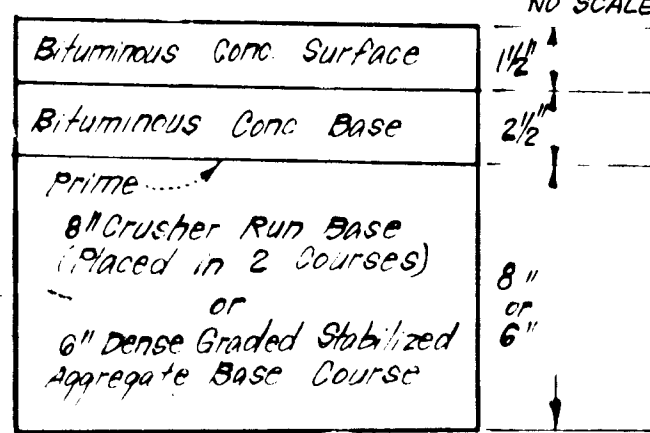 NO SCALE
Bituminous Conc. Surface
1½"
Bituminous Conc Base
2½"
Prime
8" Crusher Run Base
(Placed in 2 Courses)
or
6" Dense Graded Stabilized
Aggregate Base Course
8"
or
6"